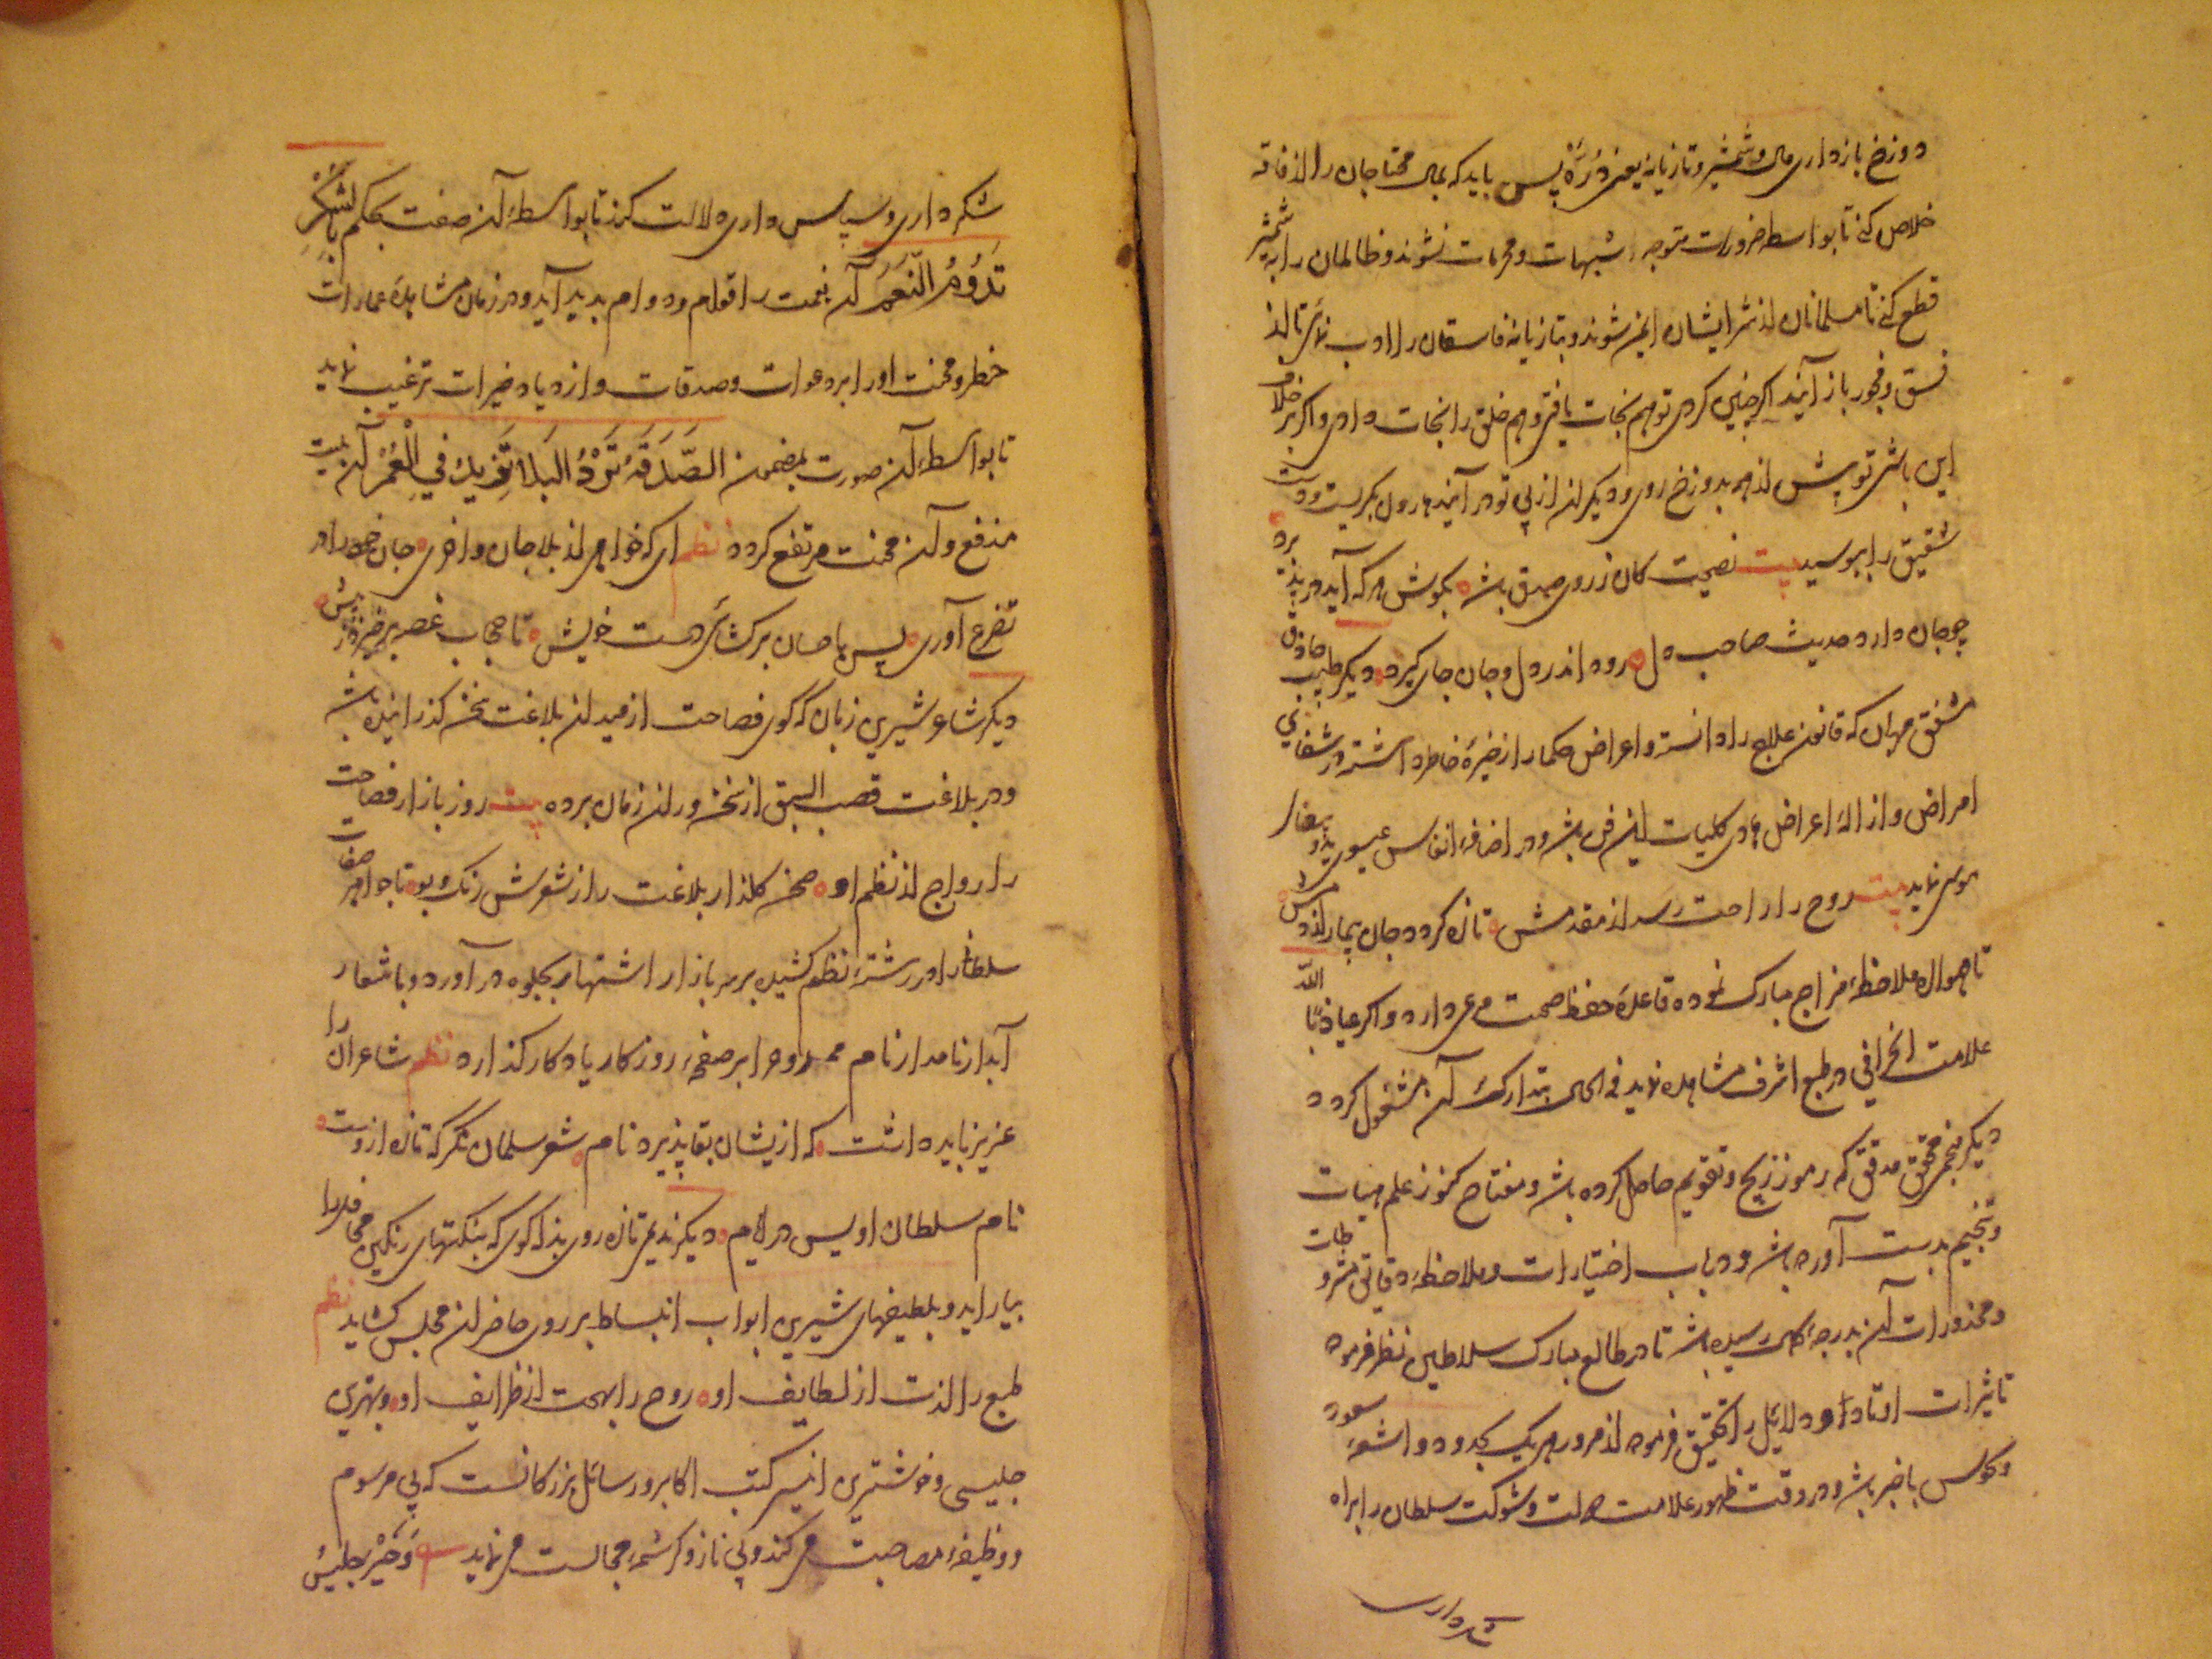 دوزخ بازداری مال و شمشیر و تازیانه یعنی دُرَّهْ پس باید که بمال محتاجان را از فاقه
خلاص کنی تا بواسطه ضرورت متوجه شبهات و محرمات نشوند و ظالمان را به شمشیر
قطع کنی تا مسلمانان از شر ایشان ایمن شوند و بتازیانه فاسقان را ادب نمائی تا از
فسق و فجور باز آیند اکر چنین کردی تو هم نجات یافتی و هم خلق را نجات دادی و اکر بر خلاف
این باشی تو پیش از همه بدوزخ روی و دیکران از پی تو در آیند هارون بکریست و دست
شقیق را ببوسید بیت نصیحت کان ز روی صدق باشد بکوش هر که آید در پذیرد
چو جان دارد حدیث صاحب دل رود اندر دل و جان جای کیرد دیکر طبیب حاذق
مشفق مهربان که قانون علاج را دانسته و اعراض حکما را ذخیرهٔ خاطر داشته و در شفای
امراض و ازالهٔ اعراض هادی کلیات این فن باشد و در اضافهٔ انفاس عیسوی ید و بیضاء
موسی نماید بیت روح را راحت رسد از مقدمش تازه کردد جان بیمار از دمش
تا همواره ملاحظهٔ مزاج مبارک نموده قاعدهٔ حفظ صحت مرعی دارد و اکر عیاذا بالله
علامت انحرافی در طبع اشرف مشاهده نماید فی الحال بتدارک آن مشغول کردد
دیکر منجم محقق مدقق که رموز زیج و تقویم حاصل کرده باشد و مفتاح کنوز علم هیات
و تنجیم بدست آورده باشد و در باب اختیارات و ملاحظهٔ دقایق مشروطات
و محذورات آن بدرجهٔ کمال رسیده باشد تا در طالع مبارک سلاطین نظر فرموده
تاثیرات اوتاد او دلایل را تحقیق فرموده از مرور هر یک بحدود و اشعهٔ سعود
و نحوس باخبر باشد و در وقت ظهور علامت دولت و شوکت سلطان را براه
شکر داری
شکرداری و سپاس داری دلالت کند تا بواسطهٔ آن صفت بحکم بالشُکْرِ
تَدُوْمُ النِّعَمُ آن نعمت را قوام و دوام پدید آید و در زمان مشاهدهٔ عمارات
خطر و محنت اورا بر دعوات و صدقات و ازدیاد خیرات ترغیب نماید
تا بواسطهٔ آن صورت بمضمون الصَّدَقَهُ تَرُدُّ البَلَأ تَزِیدُ فِي الْعُمُرْ آن بلیت
مندفع و آن محنت مرتفع کردد نظم ای که خواهی از بلا جان واخری جان خود را در
تضرع آوری پس باحسان برکشای دست خویش تا حجاب غصه برخیزد ز پیش
دیکر شاعر شیرین زبان که کوی فصاحت از میدان بلاغت سخن کذرانیده باشد
و در بلاغت قصب السبق از سخن وران زمان برده بیت روز بازار فصاحت
را رواج از نظم او صحن کلذار بلاغت را ز شعرش رنک و بو تا جواهر صفات
سلطان را در رشتهٔ نظم کشیده بر سر بازار اشتهار بجلوه در آورد و باشعار
آبدار نامدار نام ممدوح را بر صفحهٔ روزکار یادکار کذارد نظم شاعران را
عزیز باید داشت که ازیشان بقا پذیرد نام شعر سلمان نکر که تازه ازوست
نام سلطان اویس در ایام دیکر ندیم تازه روی بذله کوی که بنکتهای رنکین محافل را
بیاراید و بلطیفهای شیرین ابواب انبساط بر روی حاضران مجلس کشاید نظم
طبع را لذت از لطایف او روح را بهجت از ظرایف او و بهترین
جلیسی و خوشترین انیسی کتب اکابر و رسائل بزرکانست که بی مرسوم
و وظیفهٔ مصاحبت می کند و بی ناز و کرشمهٔ مجالست می نماید وَخَیْرُ جَلِیْسُ